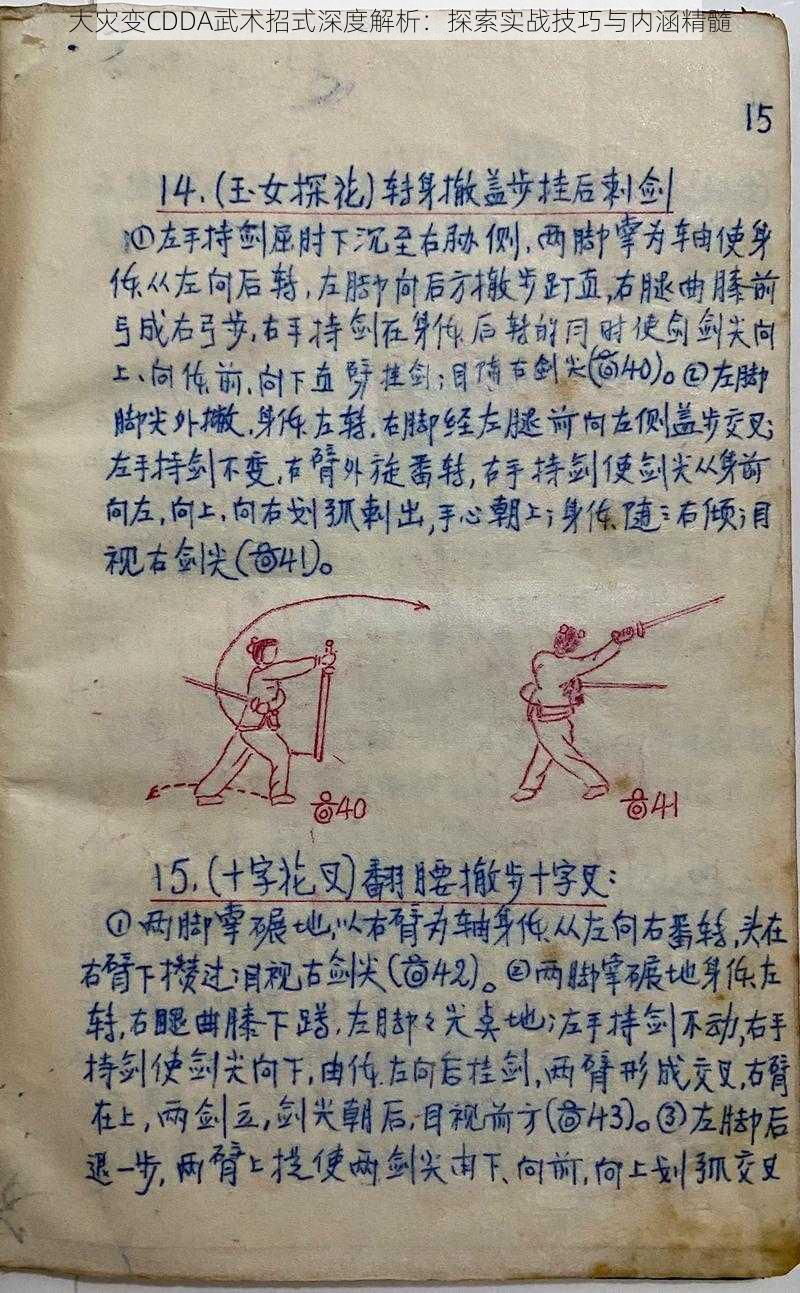 大灾变CDDA武术招式深度解析：探索实战技巧与内涵精髓
15
14.(玉女探花)转身撤盖步挂后刺剑
①左手持剑屈肘下沉至右胁侧,两脚掌为轴使身
体从左向后转,左脚向后方撤步蹬直,右腿曲膝前
弓成右弓步,右手持剑在身体后转的同时使剑剑尖向
上、向体前、向下直劈挂剑;目随右剑尖(图40)。②左脚
脚尖外撇,身体左转,右脚经左腿前向左侧盖步交叉;
左手持剑不变,右臂外旋番转,右手持剑使剑尖从身前
向左,向上,向右划弧刺出,手心朝上;身体随之右倾;目
视右剑尖(图41)。
图40
图41
15.(十字花叉)翻腰撤步十字叉:
①两脚掌碾地,以右臂为轴身体从左向右番转,头在
右臂下攒过;目视右剑尖(图42)。②两脚掌碾地身体左
转,右腿曲膝下蹲,左脚々尖点地;左手持剑不动,右手
持剑使剑尖向下,由体左向后挂剑,两臂形成交叉,右臂
在上,两剑立,剑尖朝后,目视前方(图43)。③左脚后
退一步,两臂上提使两剑尖由下、向前,向上划弧交叉